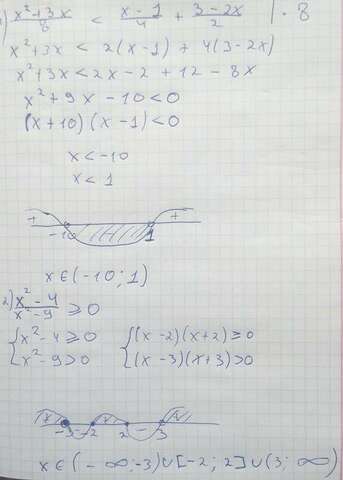 1) x²+3x/8 < x-1/4 + 3-2x/2 | · 8
x²+3x < 2(x-1) + 4(3-2x)
x²+3x < 2x-2 + 12 - 8x
x²+9x-10<0
(x+10)(x-1)<0
x<-10
x<1
+ +
-10 1
x∈(-10;1)
2) x²-4/x²-9 ≥0
{x²-4≥0 {(x-2)(x+2)≥0
{x²-9>0 {(x-3)(x+3)>0
-3 -2 2 - 3
x∈(-∞;-3)∪[-2;2]∪(3;∞)